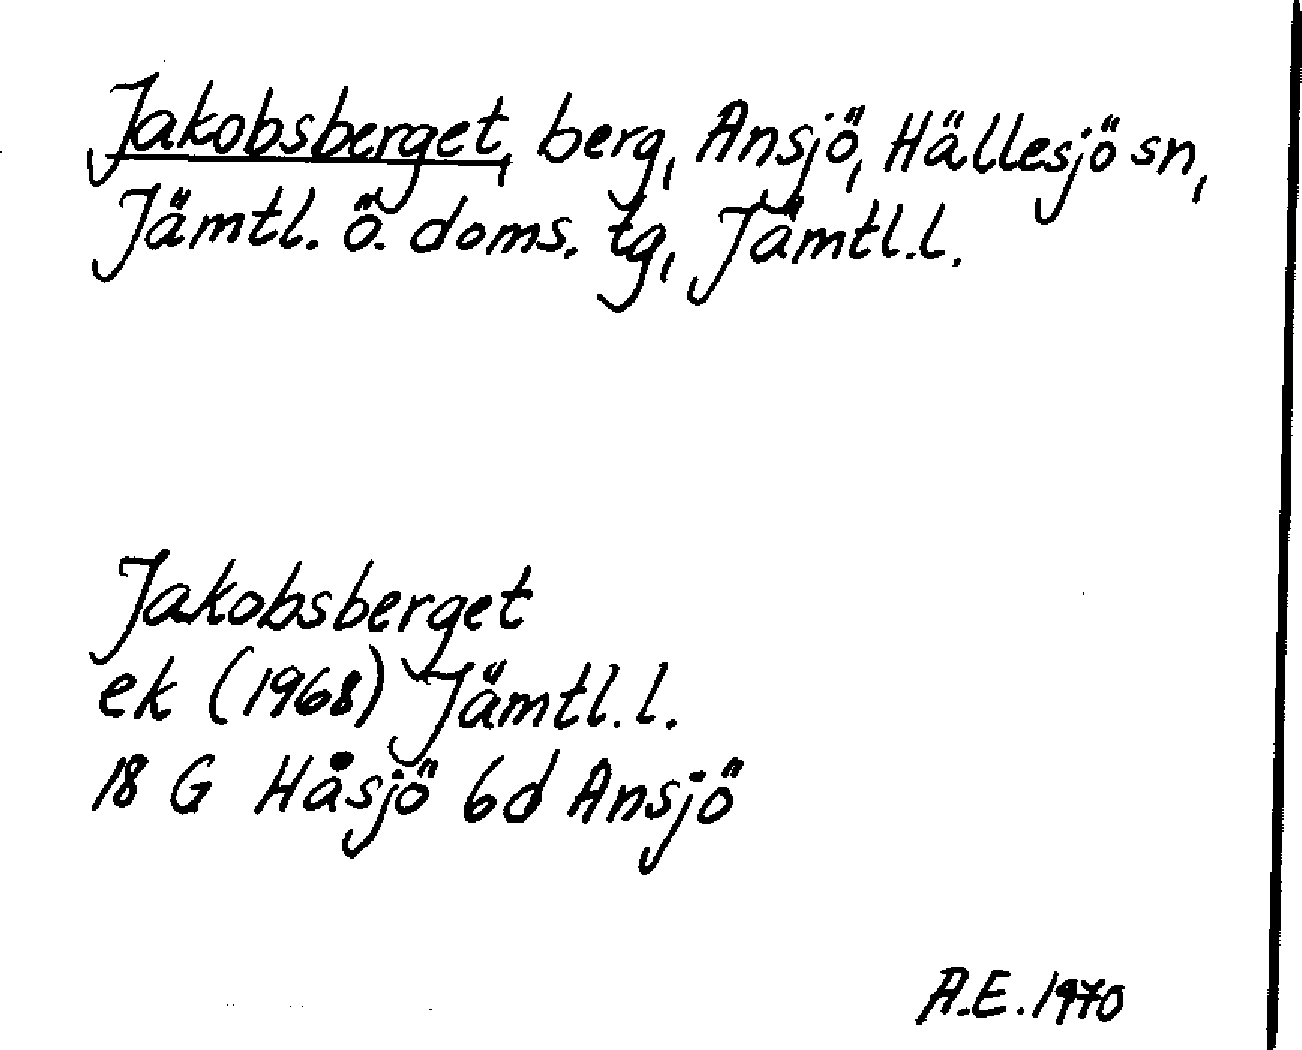 Jakobsberget, berg, Ansjö, Hällesjö sn,
Jämtl. ö. doms. tg, Jämtl.l.
Jakobsberget
ek (1968) Jämtl.l.
18 G Håsjö 6d Ansjö
A.E. 1970